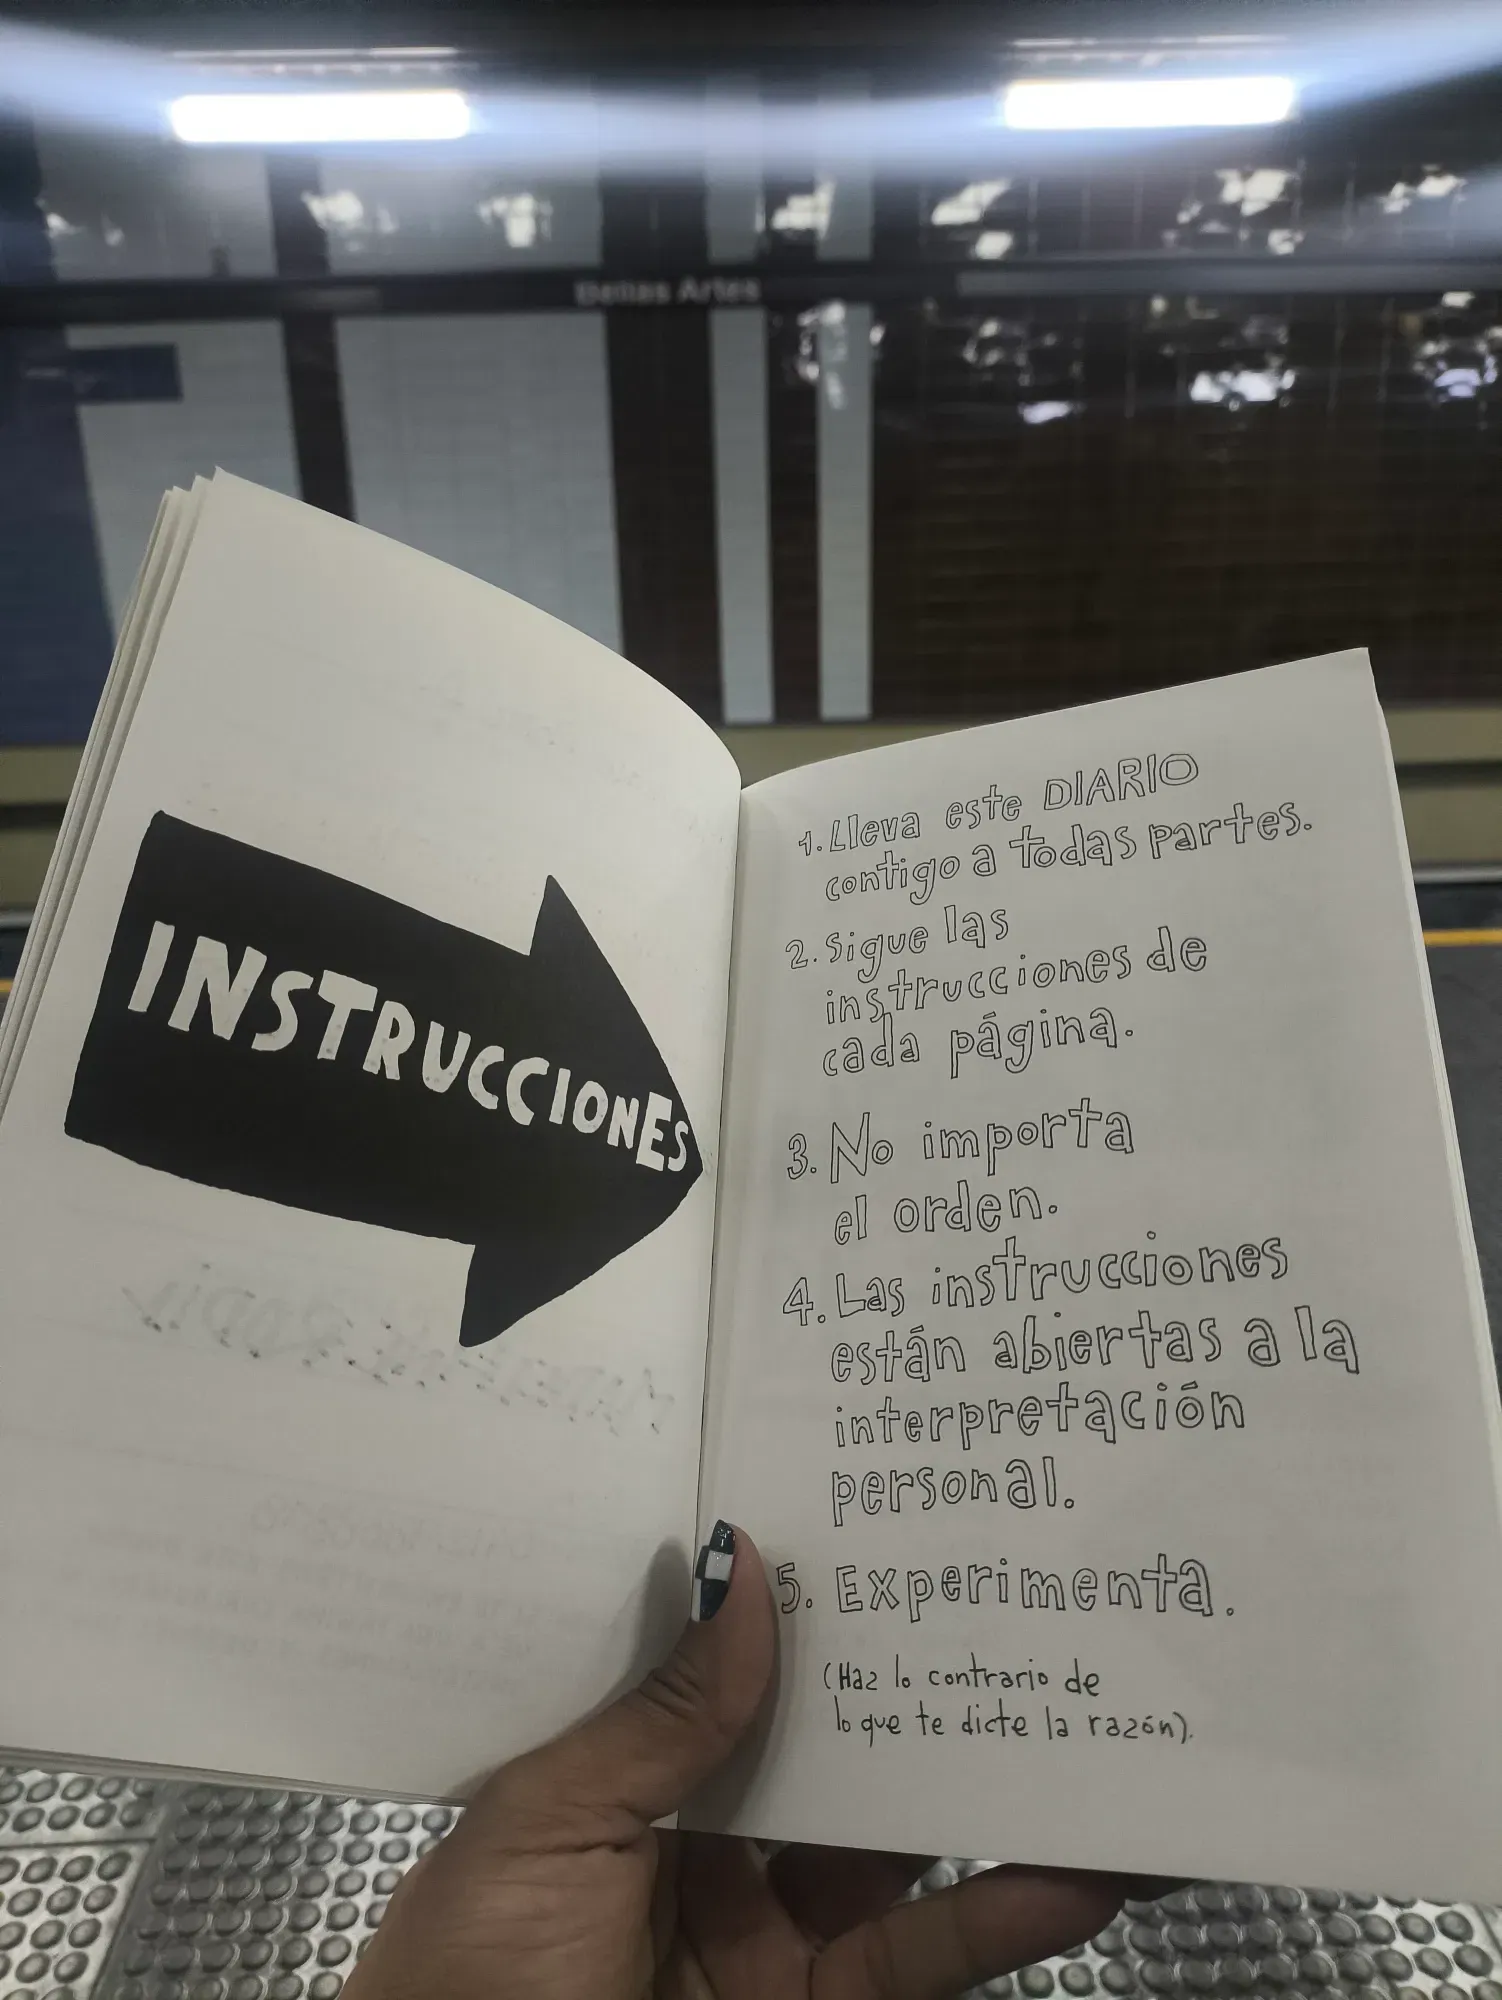 Bellas Artes
INSTRUCCIONES
1. Lleva este DIARIO
contigo a todas partes.
2. Sigue las
instrucciones de
cada página.
3. No importa
el orden.
4. Las instrucciones
están abiertas a la
interpretación
personal.
5. Experimenta.
(Haz lo contrario de
lo que te dicte la razón).